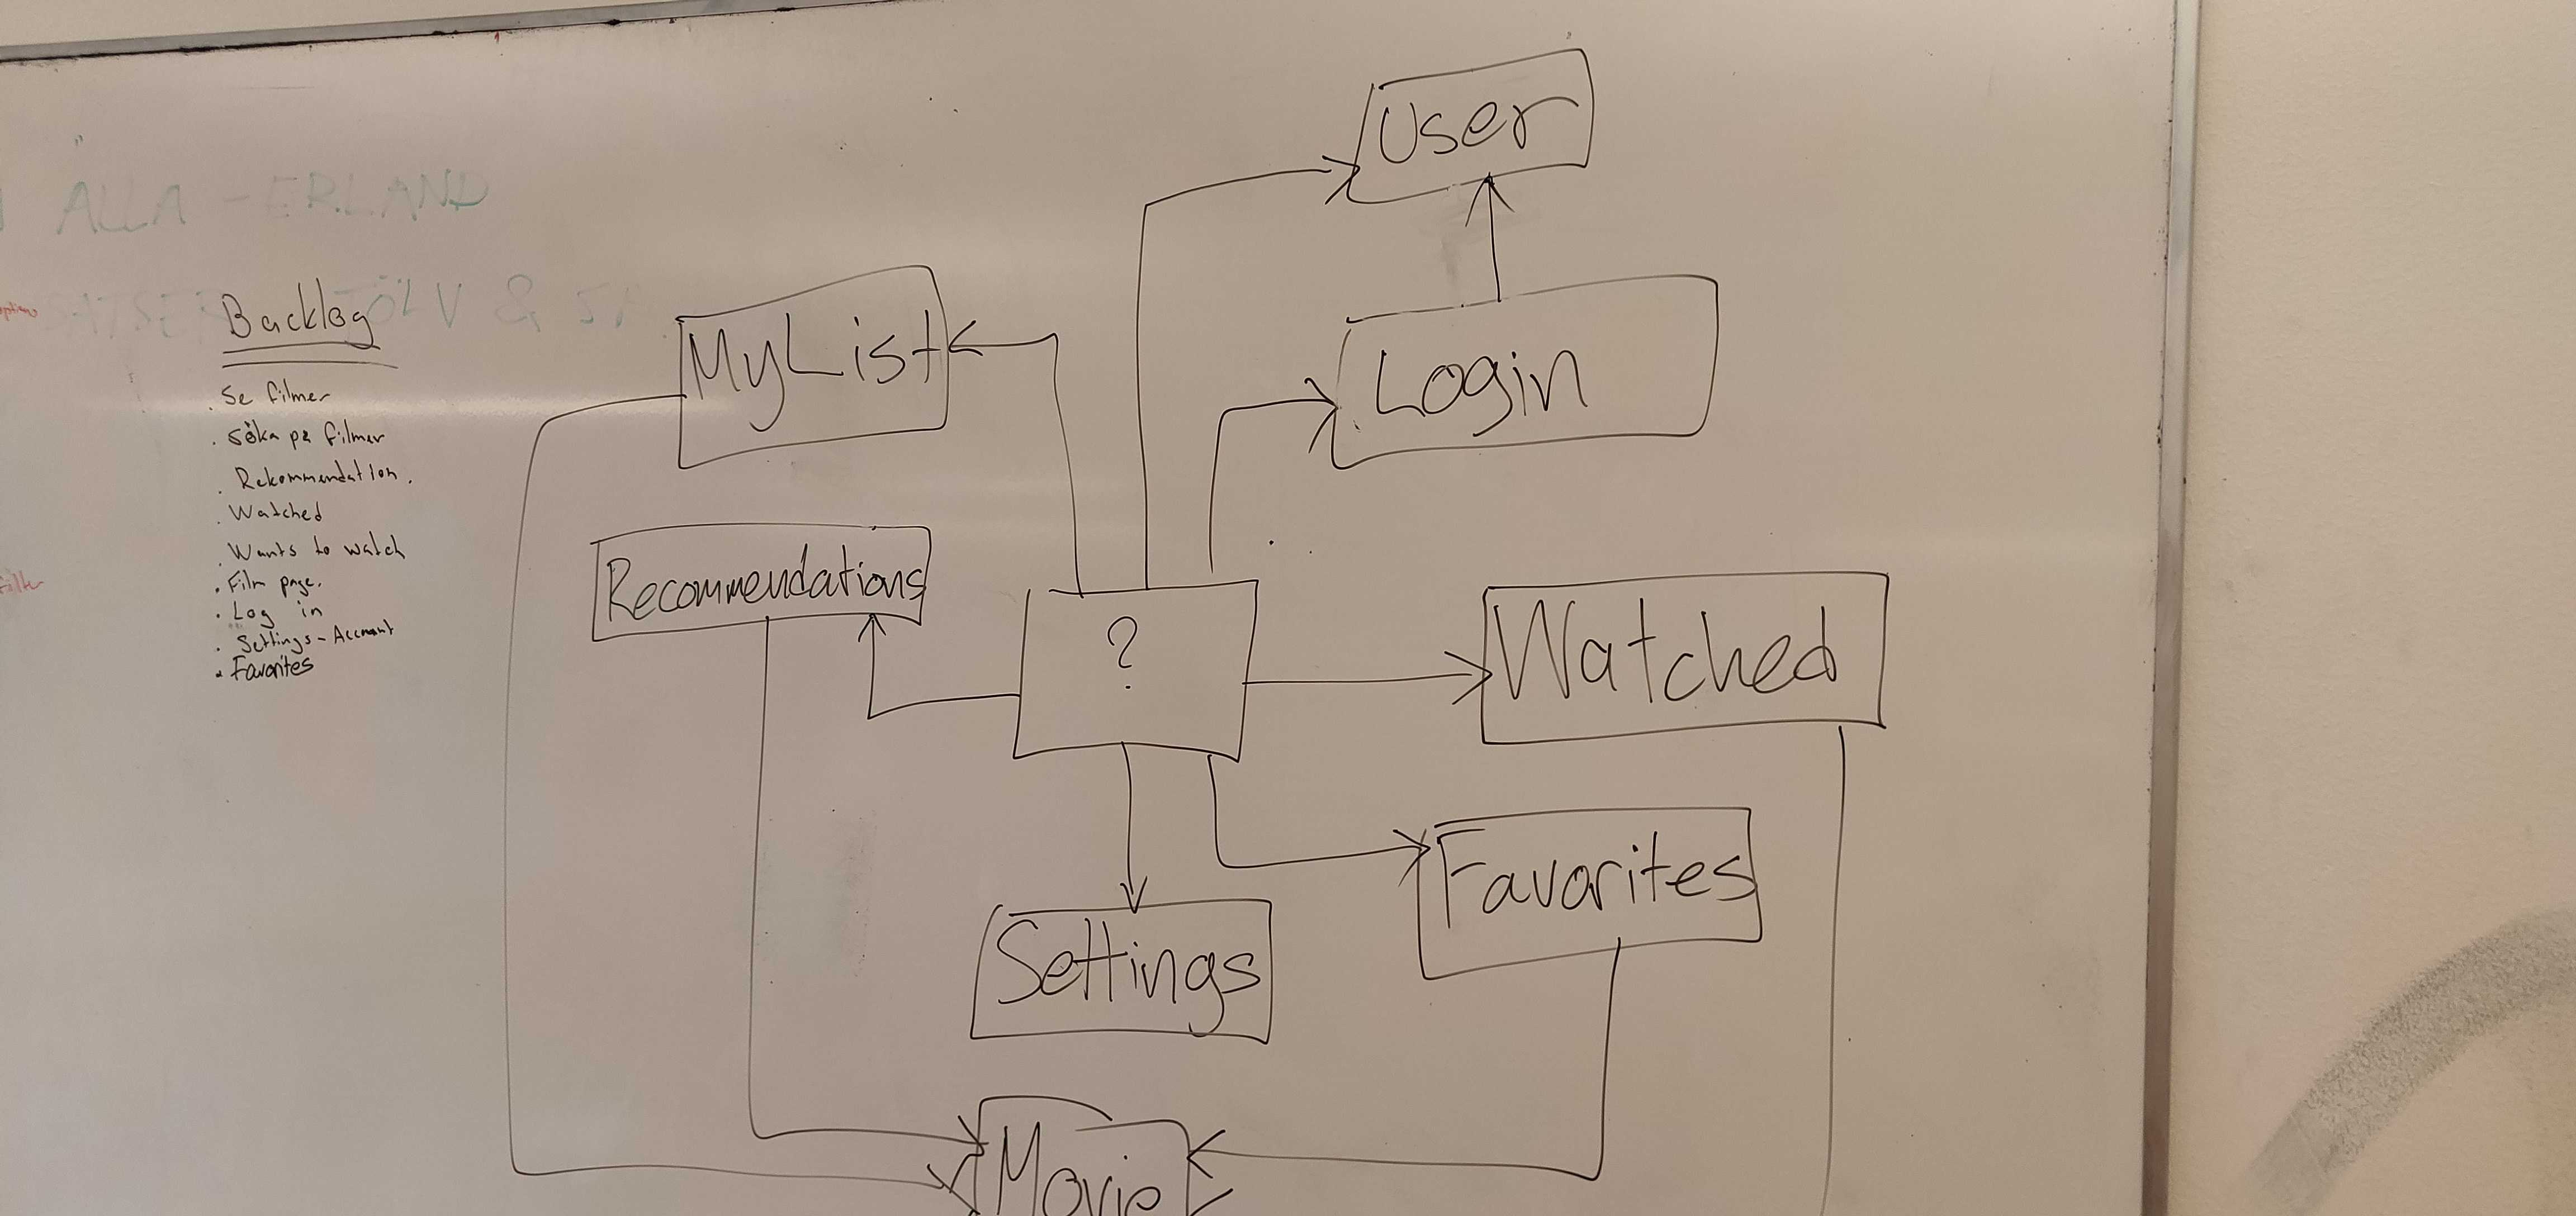 ALLA - ERLAND
Backlog
. Se filmer
. Söka på filmer
. Rekommendation.
. Watched
. Wants to watch
. Film page.
. Log in
. Settings - Account
. Favorites
User
MyList
Login
Recommendations
?
Watched
Favorites
Settings
Movie